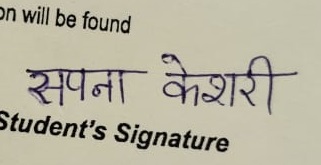 on will be found
सपना केशरी
Student's Signature